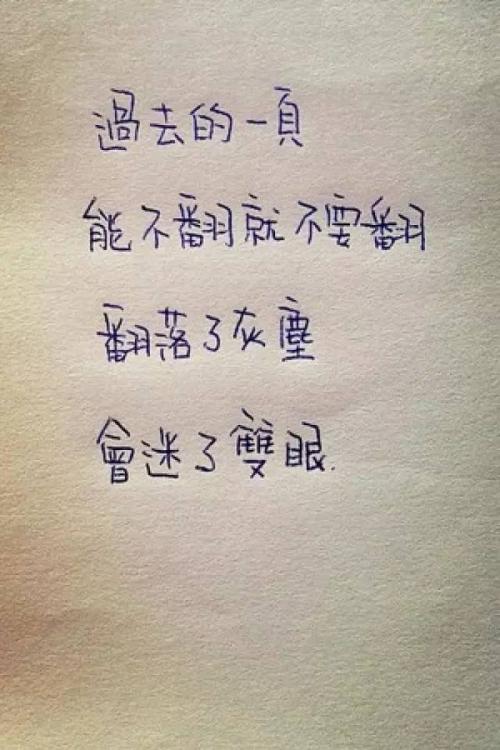 過去的一頁
能不翻就不要翻
翻落了灰塵
會迷了雙眼.